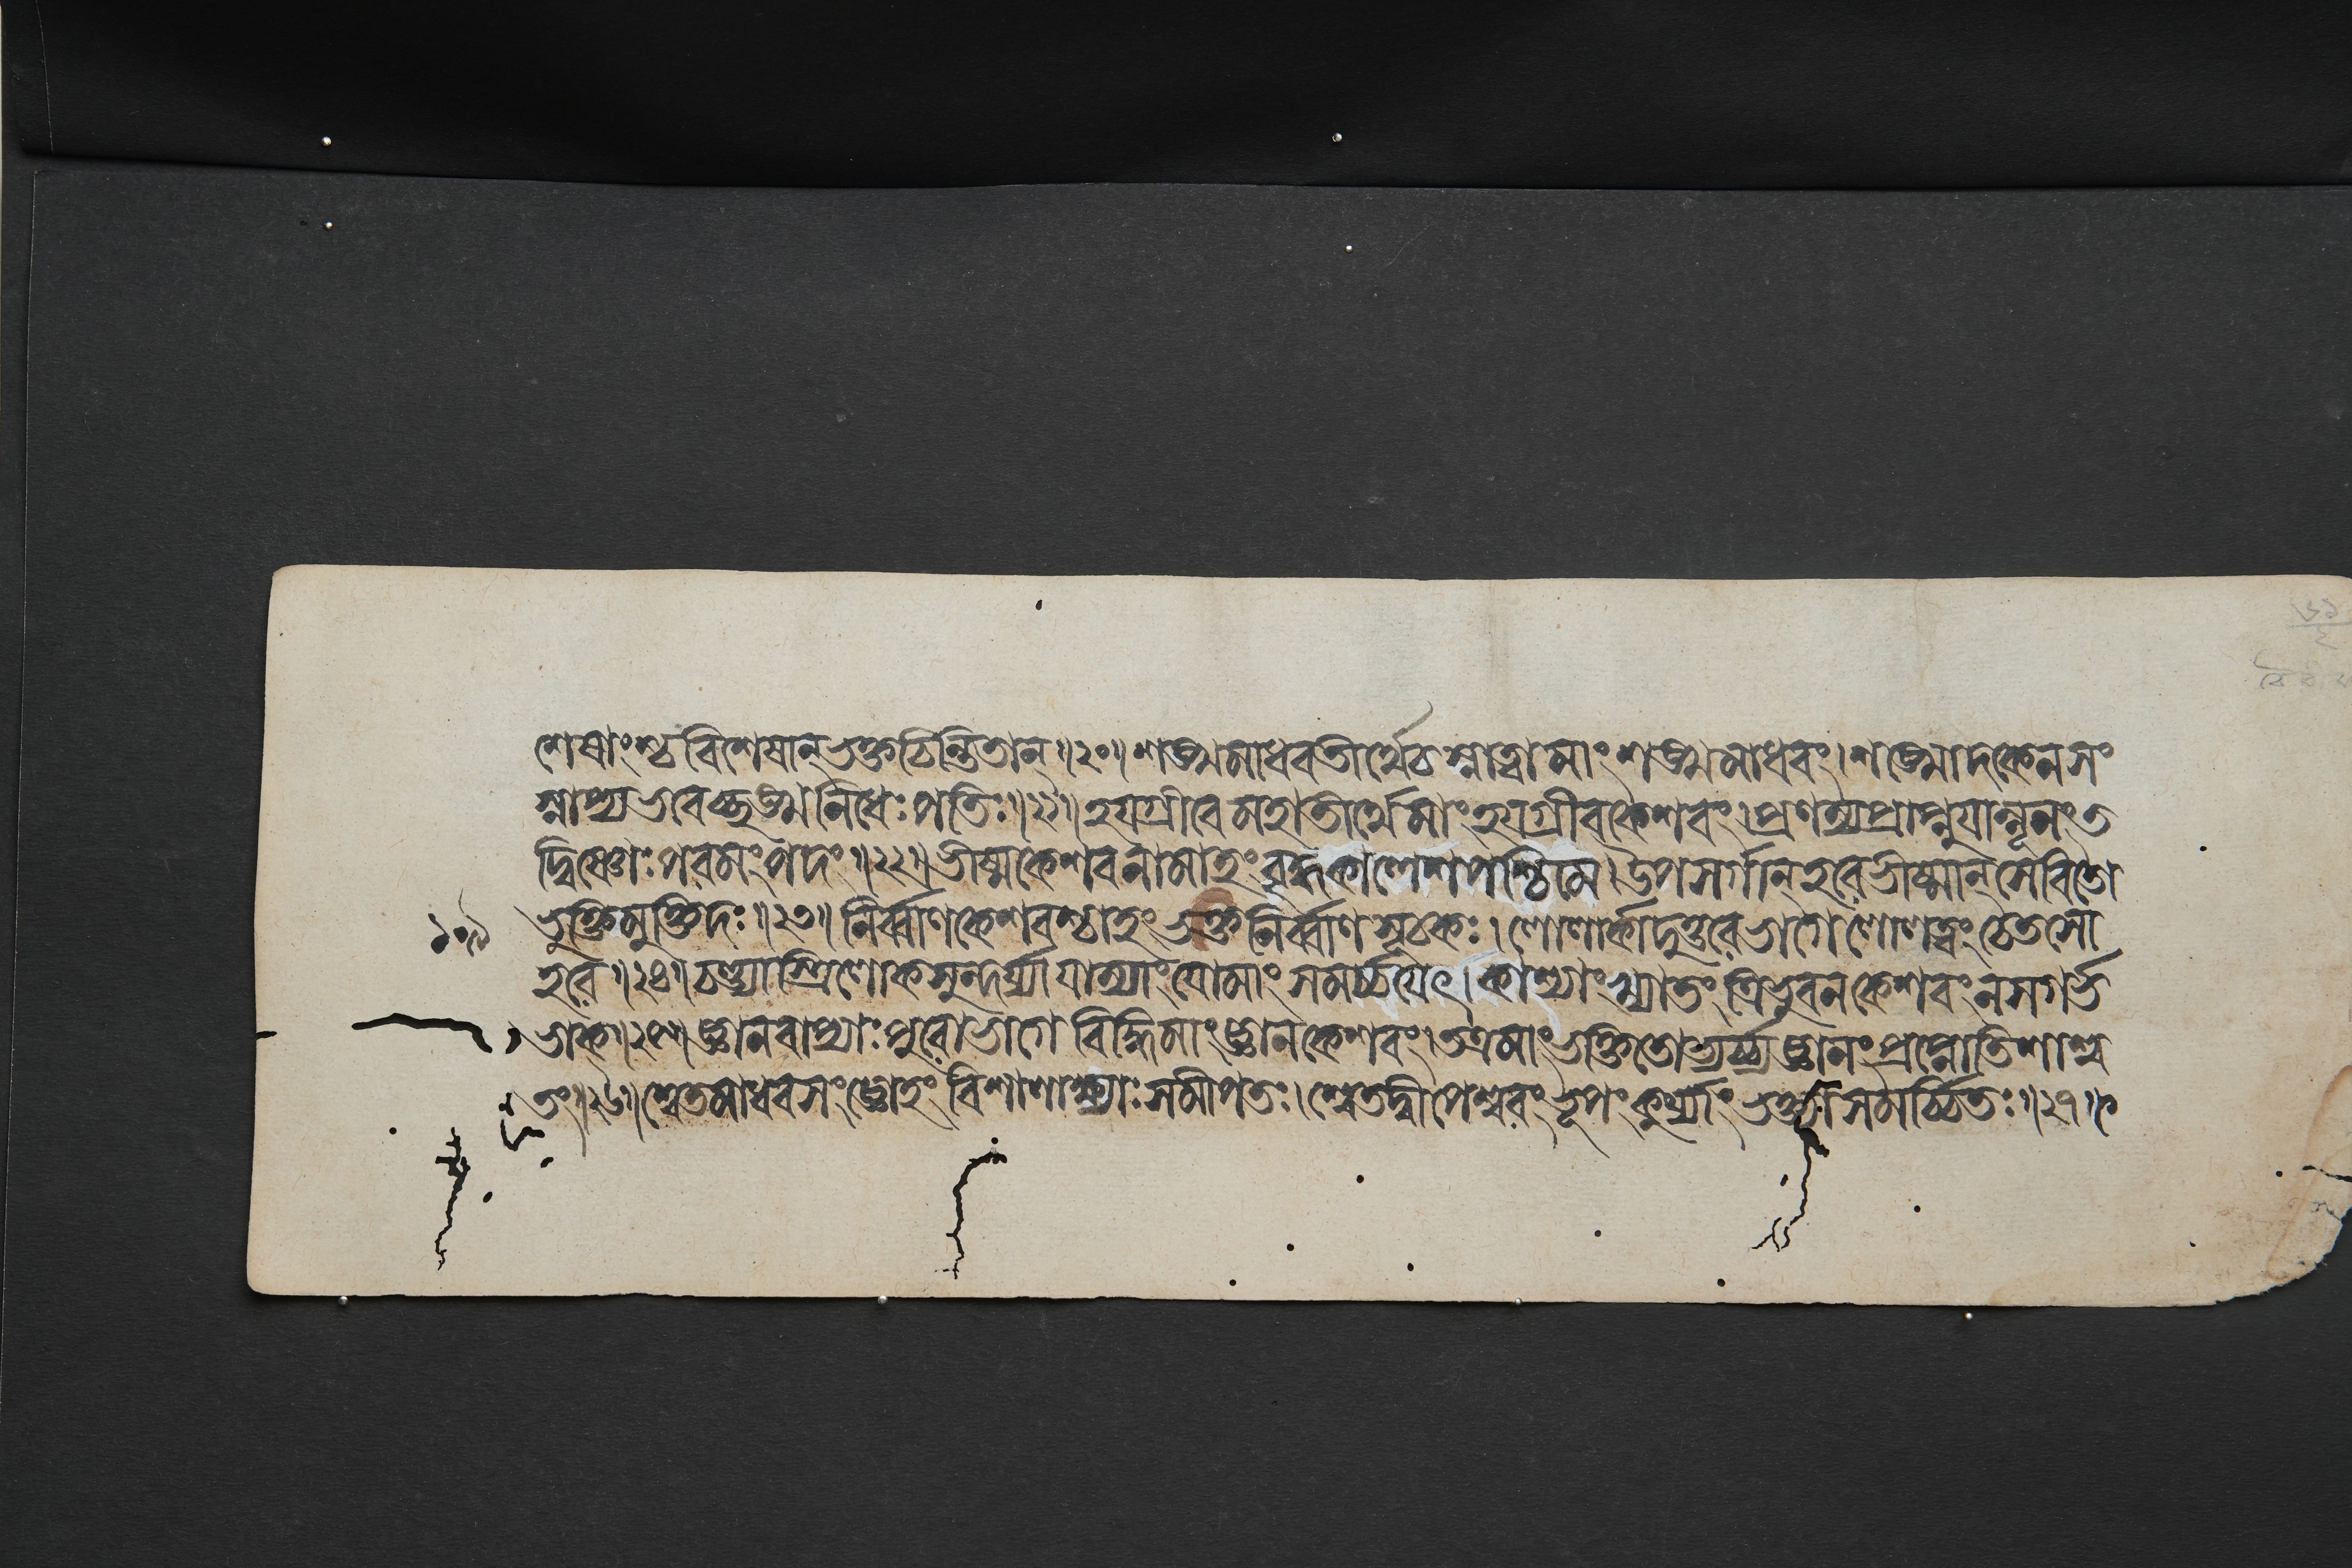 শেষাংশ্চ বিশেষান্ ভক্তচিন্তিতান্॥২০॥ শঙ্খমাধবতীর্থে চ স্নাত্বা মাং শঙ্খমাধবং। শঙ্খোদকেন সং
স্নাপ্য ভবেচ্ছঙ্খনিধেঃ পতিঃ॥২১॥ হয়গ্রীবে মহাতীর্থে মাং হয়গ্রীবকেশবং। প্রণম্য প্রাপ্নুয়ান্নূনং ত
দ্বিষ্ণোঃ পরমং পদং॥২২॥ ভীষ্মকেশবনামাহং বৃদ্ধকালেশপশ্চিমে। উপসর্গান্ হরে ভীষ্মান্ সেবিতো
ভুক্তিমুক্তিদঃ॥২৩॥ নির্ব্বাণকেশবশ্চাহং ভক্তনির্ব্বাণসূচকঃ। লোলার্কাদুত্তরে ভাগে লোলত্বং চেতসো
১০৯
হরে॥২৪॥ বন্দ্যাস্ত্রিলোকসুন্দর্য্যা যাম্যাং যো মাং সমর্চ্চয়েৎ। কাশ্যাং খ্যাতং ত্রিভুবনকেশবং ন স গর্ভ
ভাক্॥২৫॥ জ্ঞানবাপ্যাঃ পুরোভাগে বিদ্ধি মাং জ্ঞানকেশবং। তত্র মাং ভক্তিতোভ্যর্চ্চ্য জ্ঞানং প্রাপ্নোতি শাশ্ব
তং॥২৬॥ শ্বেতমাধবসংজ্ঞোহং বিশালাক্ষ্যাঃ সমীপতঃ। শ্বেতদ্বীপেশ্বরং রূপং কুর্য্যাং ভক্ত্যা সমর্চ্চিতঃ॥২৭॥